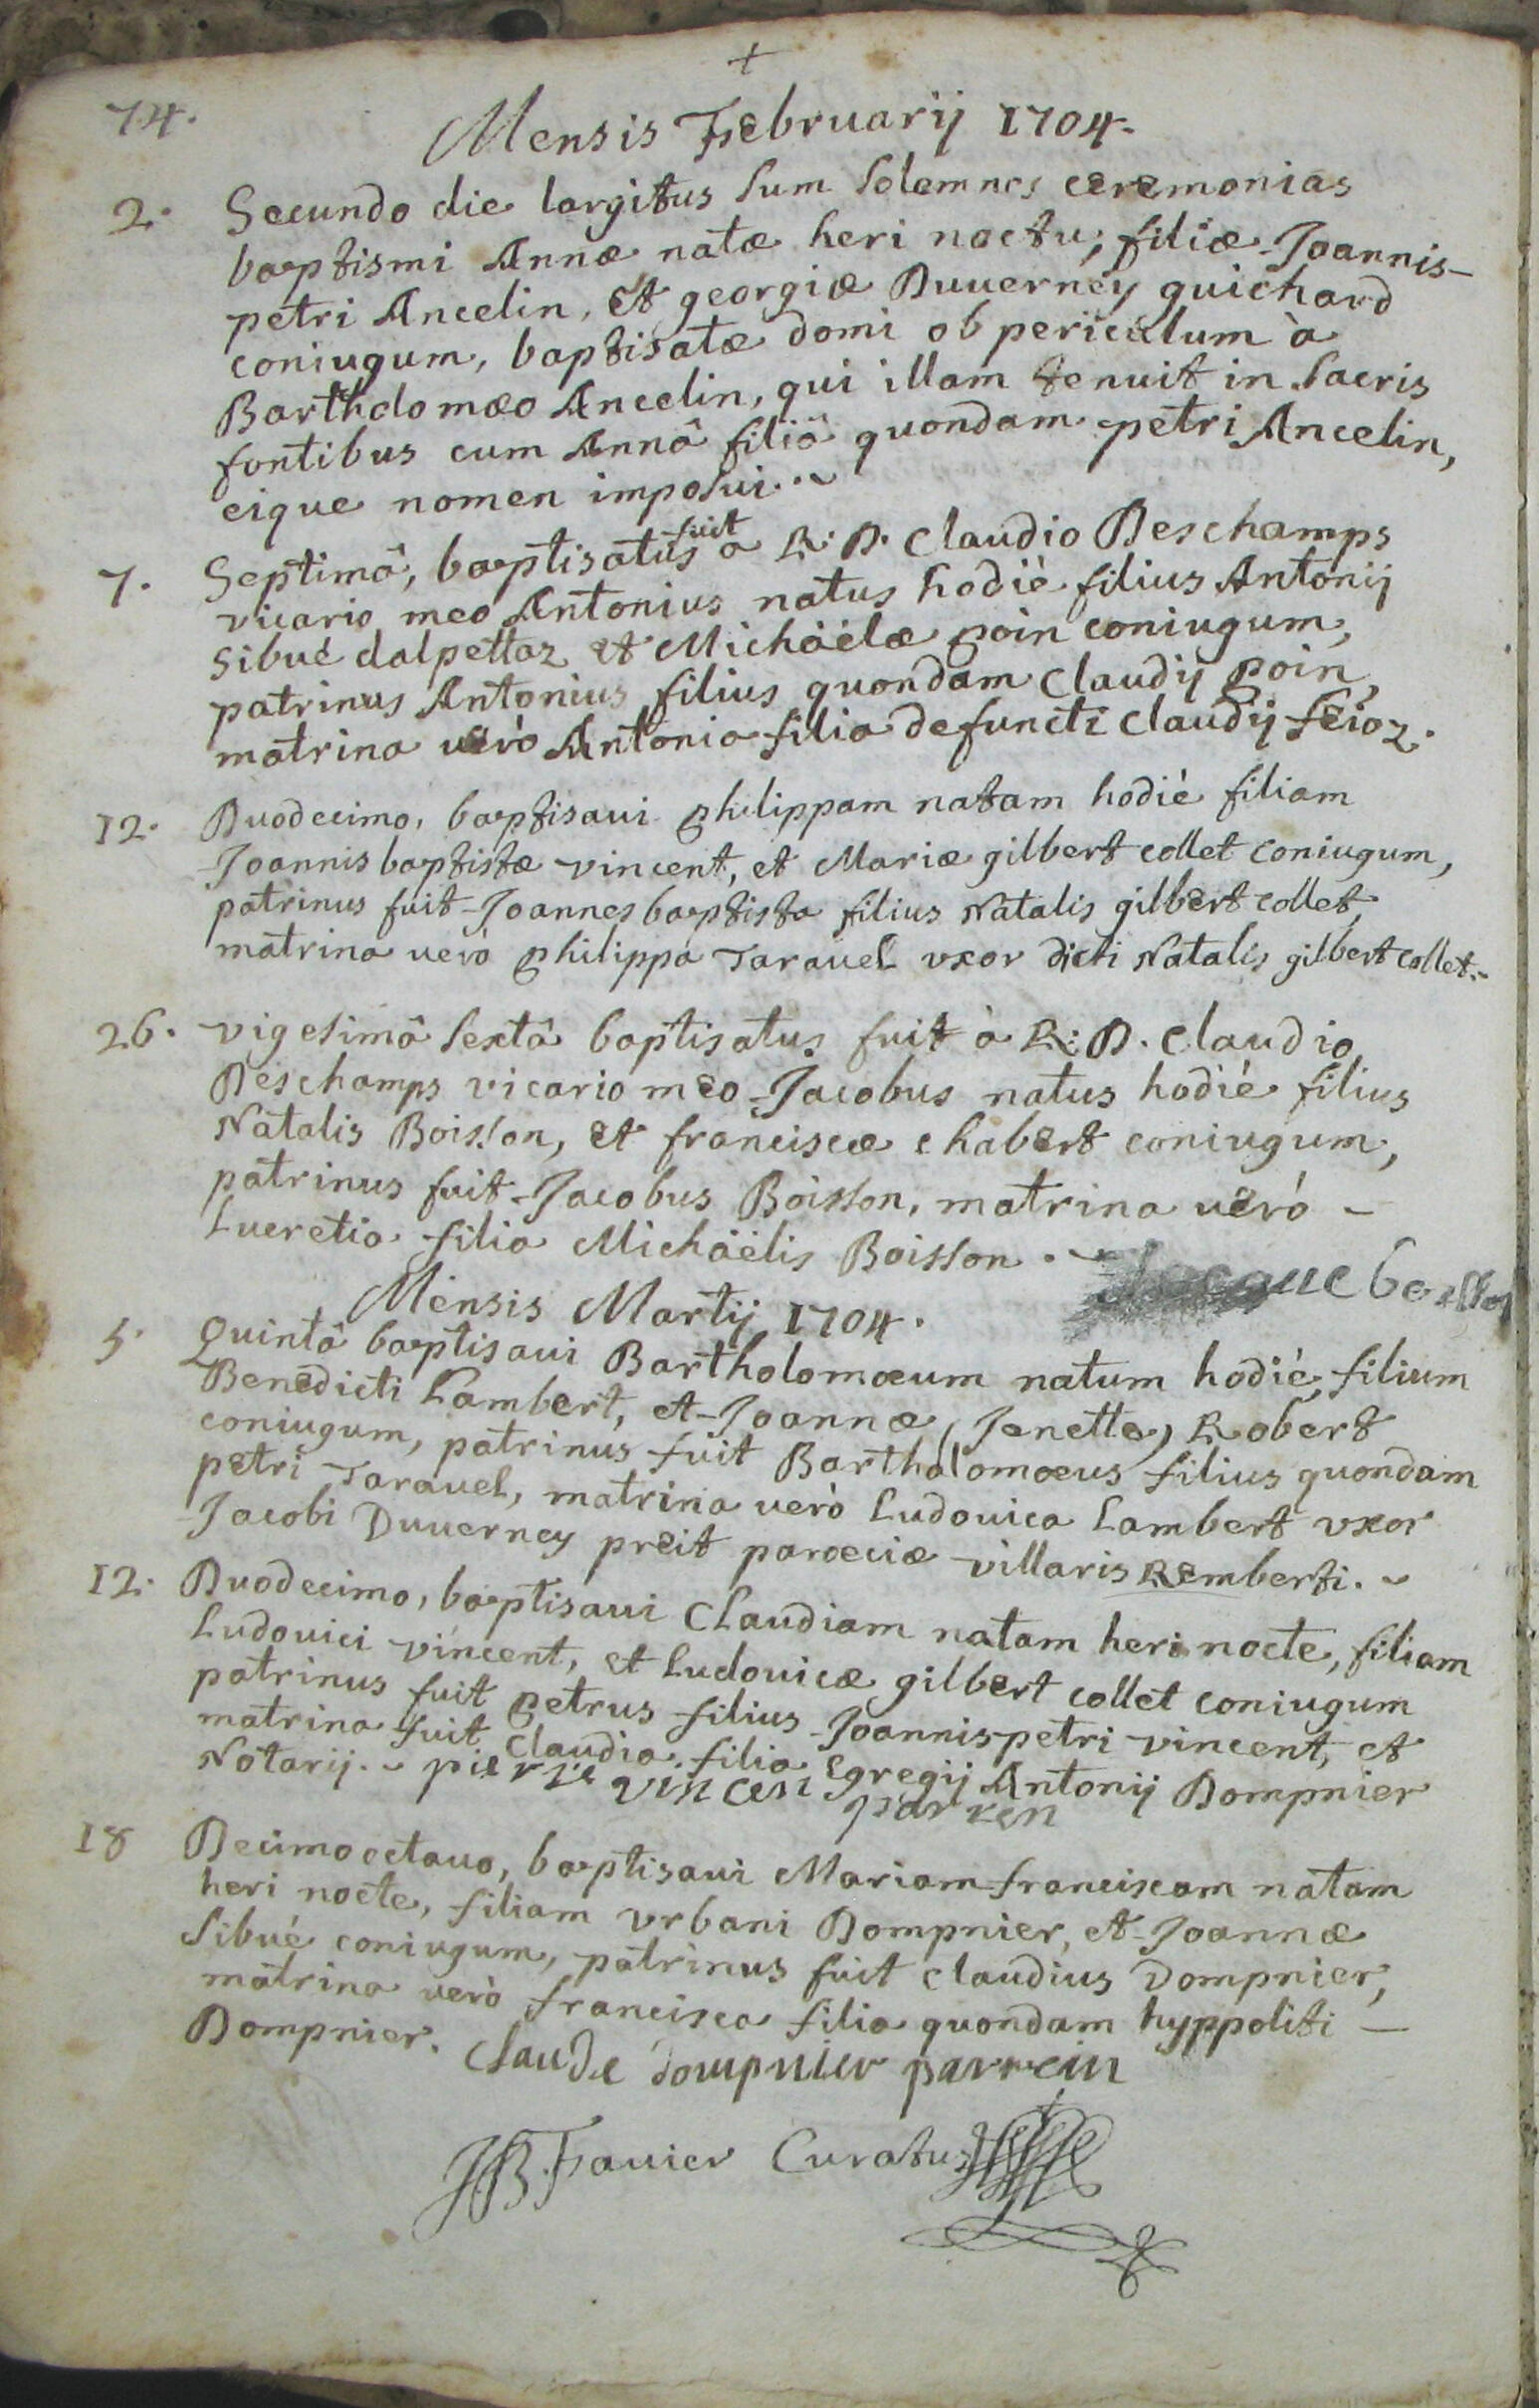 +
74.
Mensis Februarij 1704.
2. Secundo die largitus sum solemnes ceremonias
baptismi Annæ natæ heri noctu, filiæ Joannis-
petri Ancelin, et georgiæ Duuerney guichard
coniugum, baptisatæ domi ob periculum à
Bartholomæo Ancelin, qui illam tenuit in sacris
fontibus cum Annâ filiâ quondam petri Ancelin,
eique nomen imposui.~
7. Septimâ, baptisatus fuit a R: D. Claudio Deschamps
vicario meo Antonius natus hodiè filius Antonij
Sibué dalpettaz et Michäelæ poin coniugum,
patrinus Antonius filius quondam Claudij poin,
matrina verò Antonia filia defuncti Claudij feioz.
12. Duodecimo, baptisaui philippam natam hodiè filiam
Joannis baptistæ vincent, et Mariæ gilbert collet coniugum,
patrinus fuit Joannes baptista filius Natalis gilbert collet,
matrina uerò philippa Tarauel vxor dicti Natalis gilbert collet.~
26. vigesimâ sextâ baptisatus fuit à R: D. Claudio
Deschamps vicario meo Jacobus natus hodiè filius
Natalis Boisson, et franciscæ chabert coniugum,
patrinus fuit Jacobus Boisson, matrina uerò -
Lucretia filia Michäelis Boisson.~
Mensis Martij 1704.
5. Quintâ baptisaui Bartholomæum natum hodiè, filium
Benedicti Lambert, et Joannæ, (Jenette) Robert
coniugum, patrinus fuit Bartholomæus filius quondam
petri Tarauel, matrina uerò Ludouica Lambert vxor
Jacobi Duuerney preit paroeciæ villaris Remberti.~
12. Duodecimo, baptisaui Claudiam natam heri nocte, filiam
Ludouici vincent, et Ludouicæ gilbert collet coniugum
patrinus fuit petrus filius Joannispetri vincent, et
matrina fuit Claudia filia Egregij Antonij Dompnier
Notarij.~ pierre vincen parren
18 Decimo octauo, baptisaui Mariam franciscam natam
heri nocte, filiam vrbani Dompnier, et Joannæ
Sibué coniugum, patrinus fuit Claudius Dompnier,
matrina verò francisca filia quondam hyppoliti -
Dompnier. Claude dompnier parrein
JB. Fauier Curatus